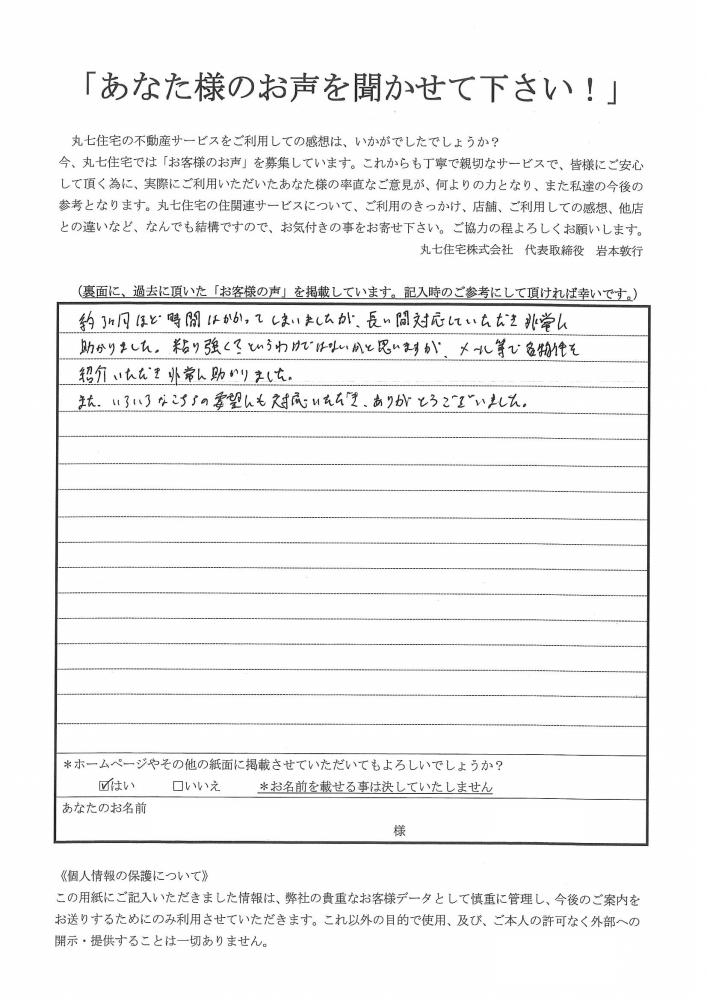 「あなた様のお声を聞かせて下さい！」
丸七住宅の不動産サービスをご利用しての感想は、いかがでしたでしょうか？
今、丸七住宅では「お客様のお声」を募集しています。これからも丁寧で親切なサービスで、皆様にご安心
して頂く為に、実際にご利用いただいたあなた様の率直なご意見が、何よりの力となり、また私達の今後の
参考となります。丸七住宅の住関連サービスについて、ご利用のきっかけ、店舗、ご利用しての感想、他店
との違いなど、なんでも結構ですので、お気付きの事をお寄せ下さい。ご協力の程よろしくお願いします。
丸七住宅株式会社　代表取締役　岩本敦行
（裏面に、過去に頂いた「お客様の声」を掲載しています。記入時のご参考にして頂ければ幸いです。）
約3ヶ月ほど時間はかかってしまいましたが、長い間対応していただき非常に
助かりました。粘り強く？というわけではないかと思いますが、メール等で各物件を
紹介いただき非常に助かりました。
また、いろいろなこちらの要望にも対応いただき、ありがとうございました。
＊ホームページやその他の紙面に掲載させていただいてもよろしいでしょうか？
☑はい　□いいえ　＊お名前を載せる事は決していたしません
あなたのお名前
様
《個人情報の保護について》
この用紙にご記入いただきました情報は、弊社の貴重なお客様データとして慎重に管理し、今後のご案内を
お送りするためにのみ利用させていただきます。これ以外の目的で使用、及び、ご本人の許可なく外部への
開示・提供することは一切ありません。